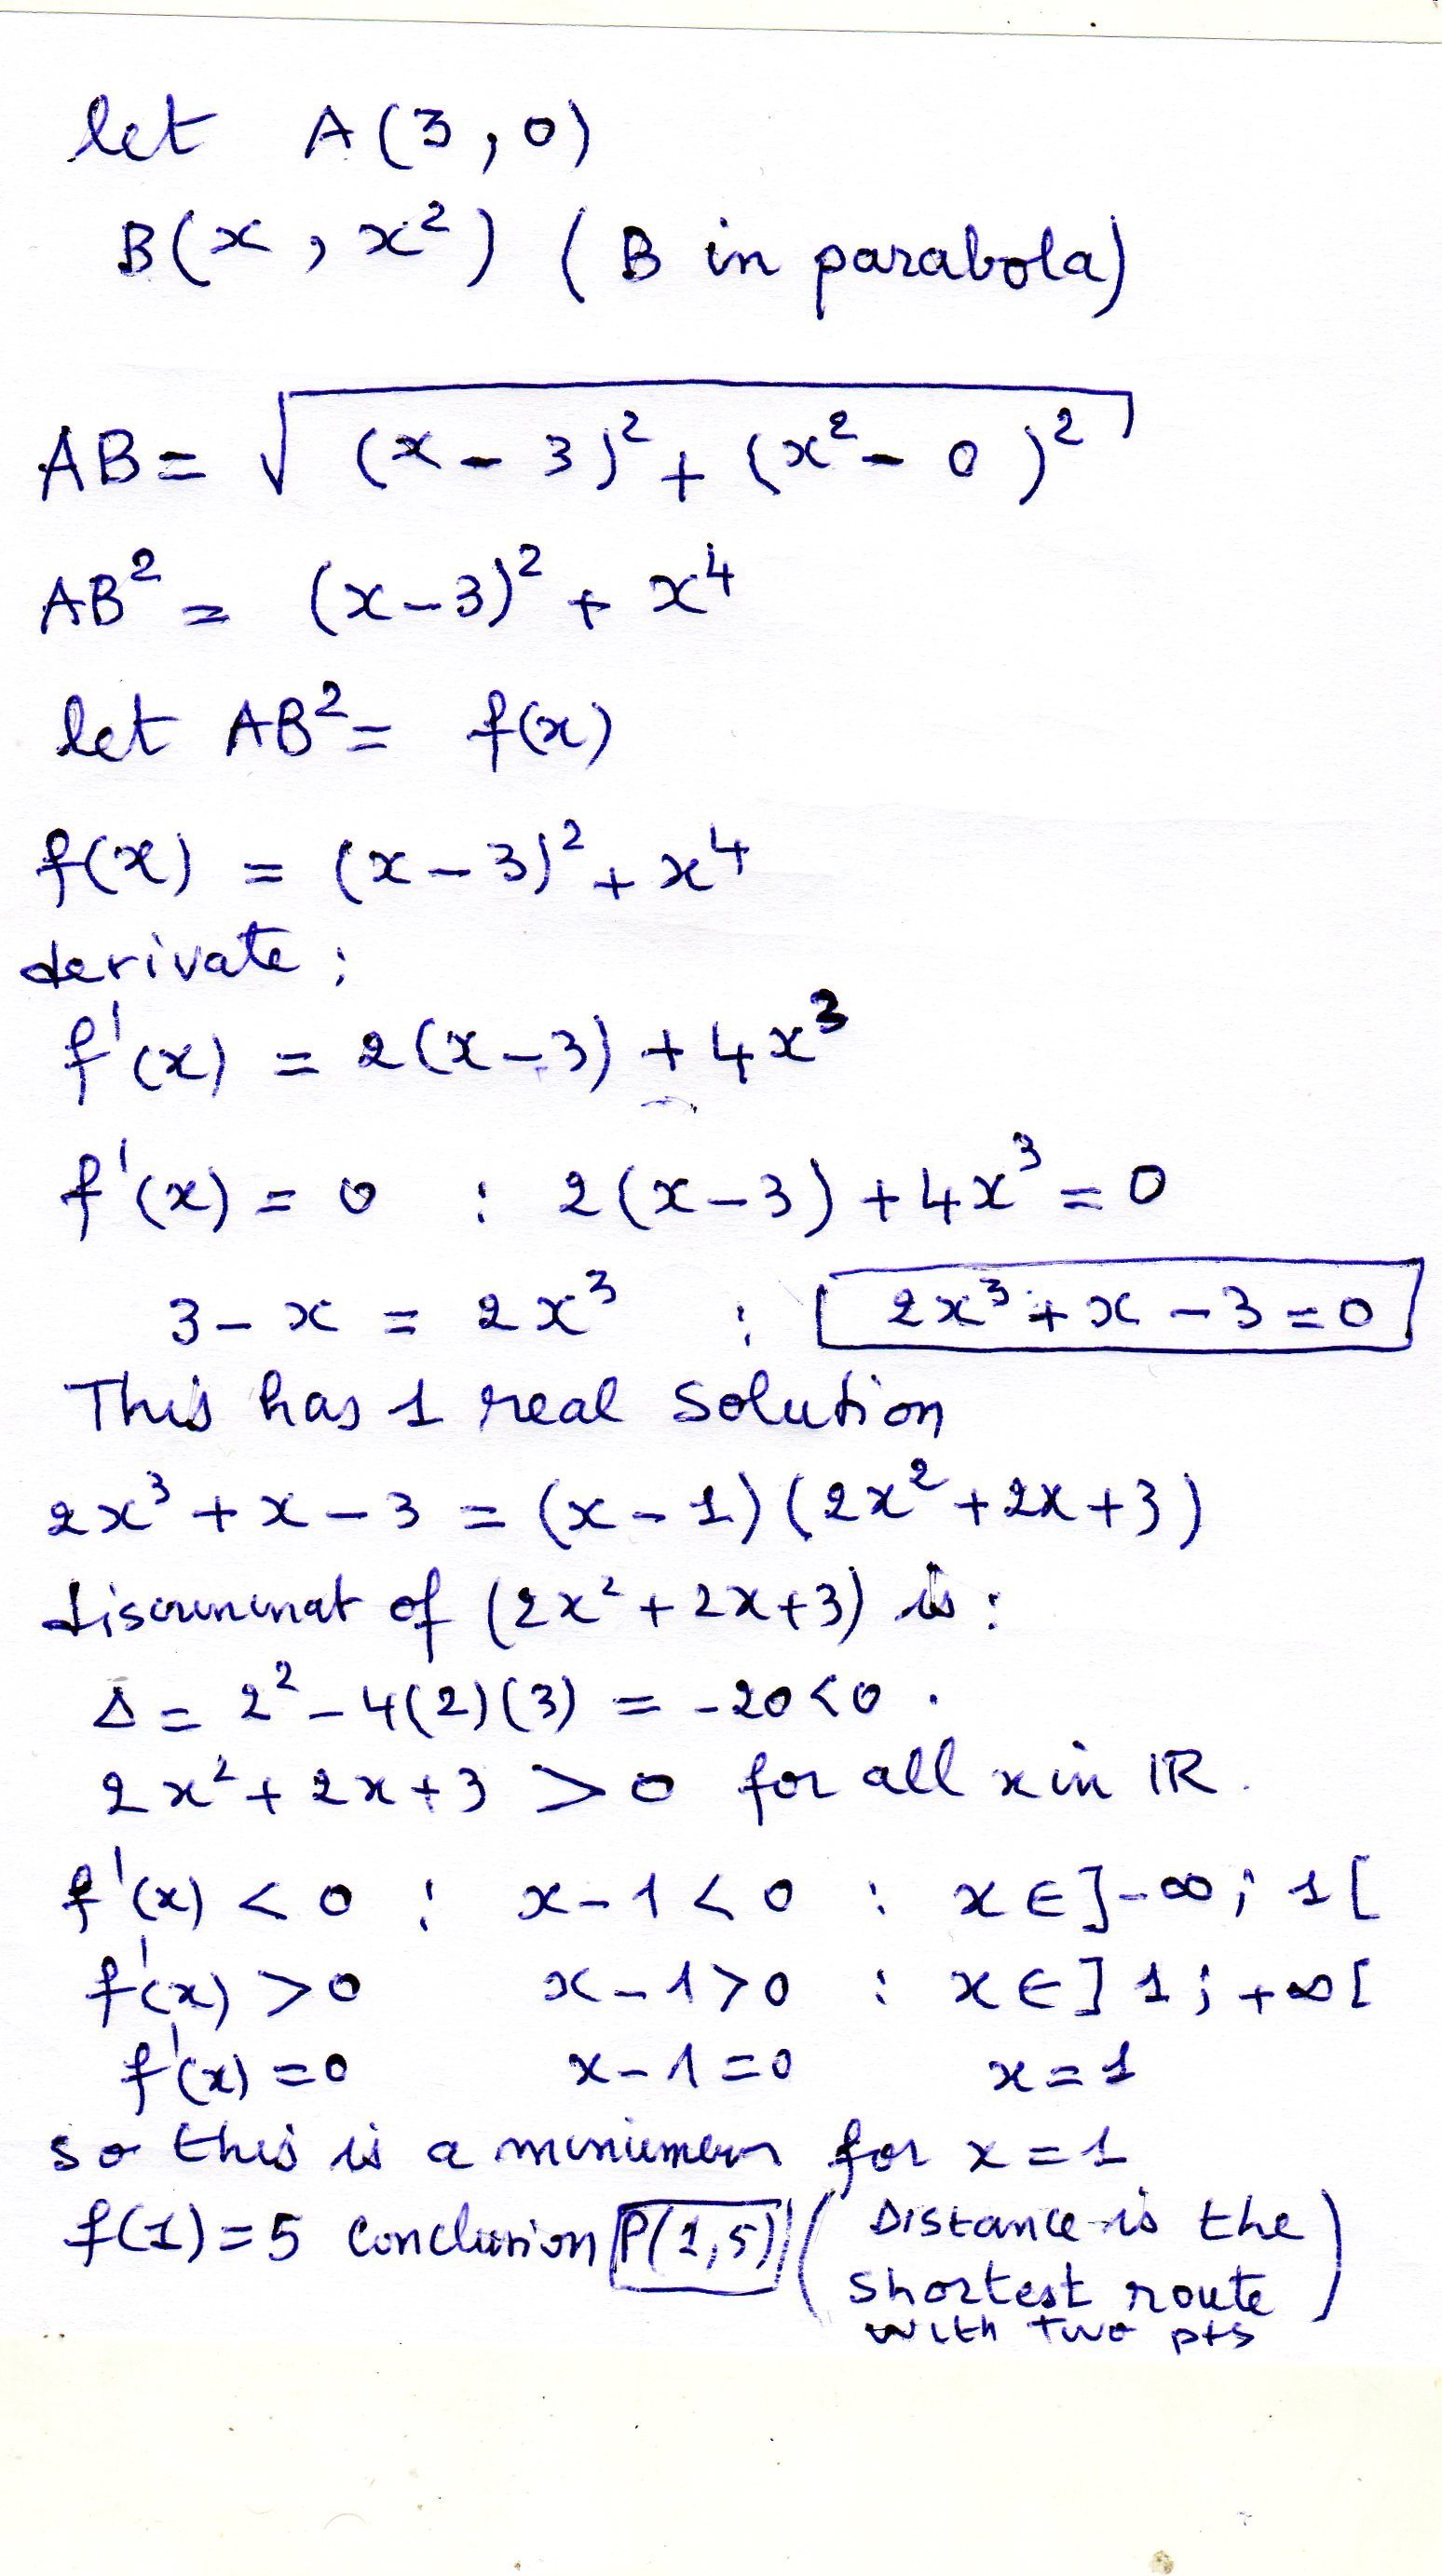 let A(3,0)
B(x, x²) (B in parabola)
AB = √((x-3)² + (x²-0)²)
AB² = (x-3)² + x⁴
let AB² = f(x)
f(x) = (x-3)² + x⁴
derivate :
f'(x) = 2(x-3) + 4x³
f'(x) = 0 : 2(x-3) + 4x³ = 0
3 - x = 2x³ : 2x³ + x - 3 = 0
This has 1 real solution
2x³ + x - 3 = (x-1)(2x² + 2x + 3)
discriminat of (2x² + 2x + 3) is :
Δ = 2² - 4(2)(3) = -20 < 0 .
2x² + 2x + 3 > 0 for all x in IR .
f'(x) < 0 : x-1 < 0 : x ∈ ]-∞ ; 1[
f'(x) > 0 x-1 > 0 : x ∈ ] 1 ; +∞[
f'(x) = 0 x-1 = 0 x = 1
so this is a minimum for x = 1
f(1) = 5 conclusion P(1,5) (Distance is the
shortest route
with two pts)